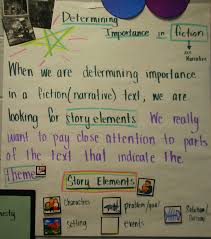 Determining
Importance in fiction
Narrative
When we are determining importance
in a fiction(narrative) text, we are
looking for story elements. We really
want to pay close attention to parts
of the text that indicate the
theme
Story Elements
characters
problem/goal
Solution/
setting
events